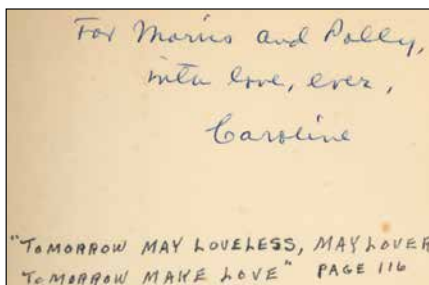 For Morris and Polly,
with love, ever,
Caroline
"TOMORROW MAY LOVELESS, MAY LOVER
TOMORROW MAKE LOVE" PAGE 116